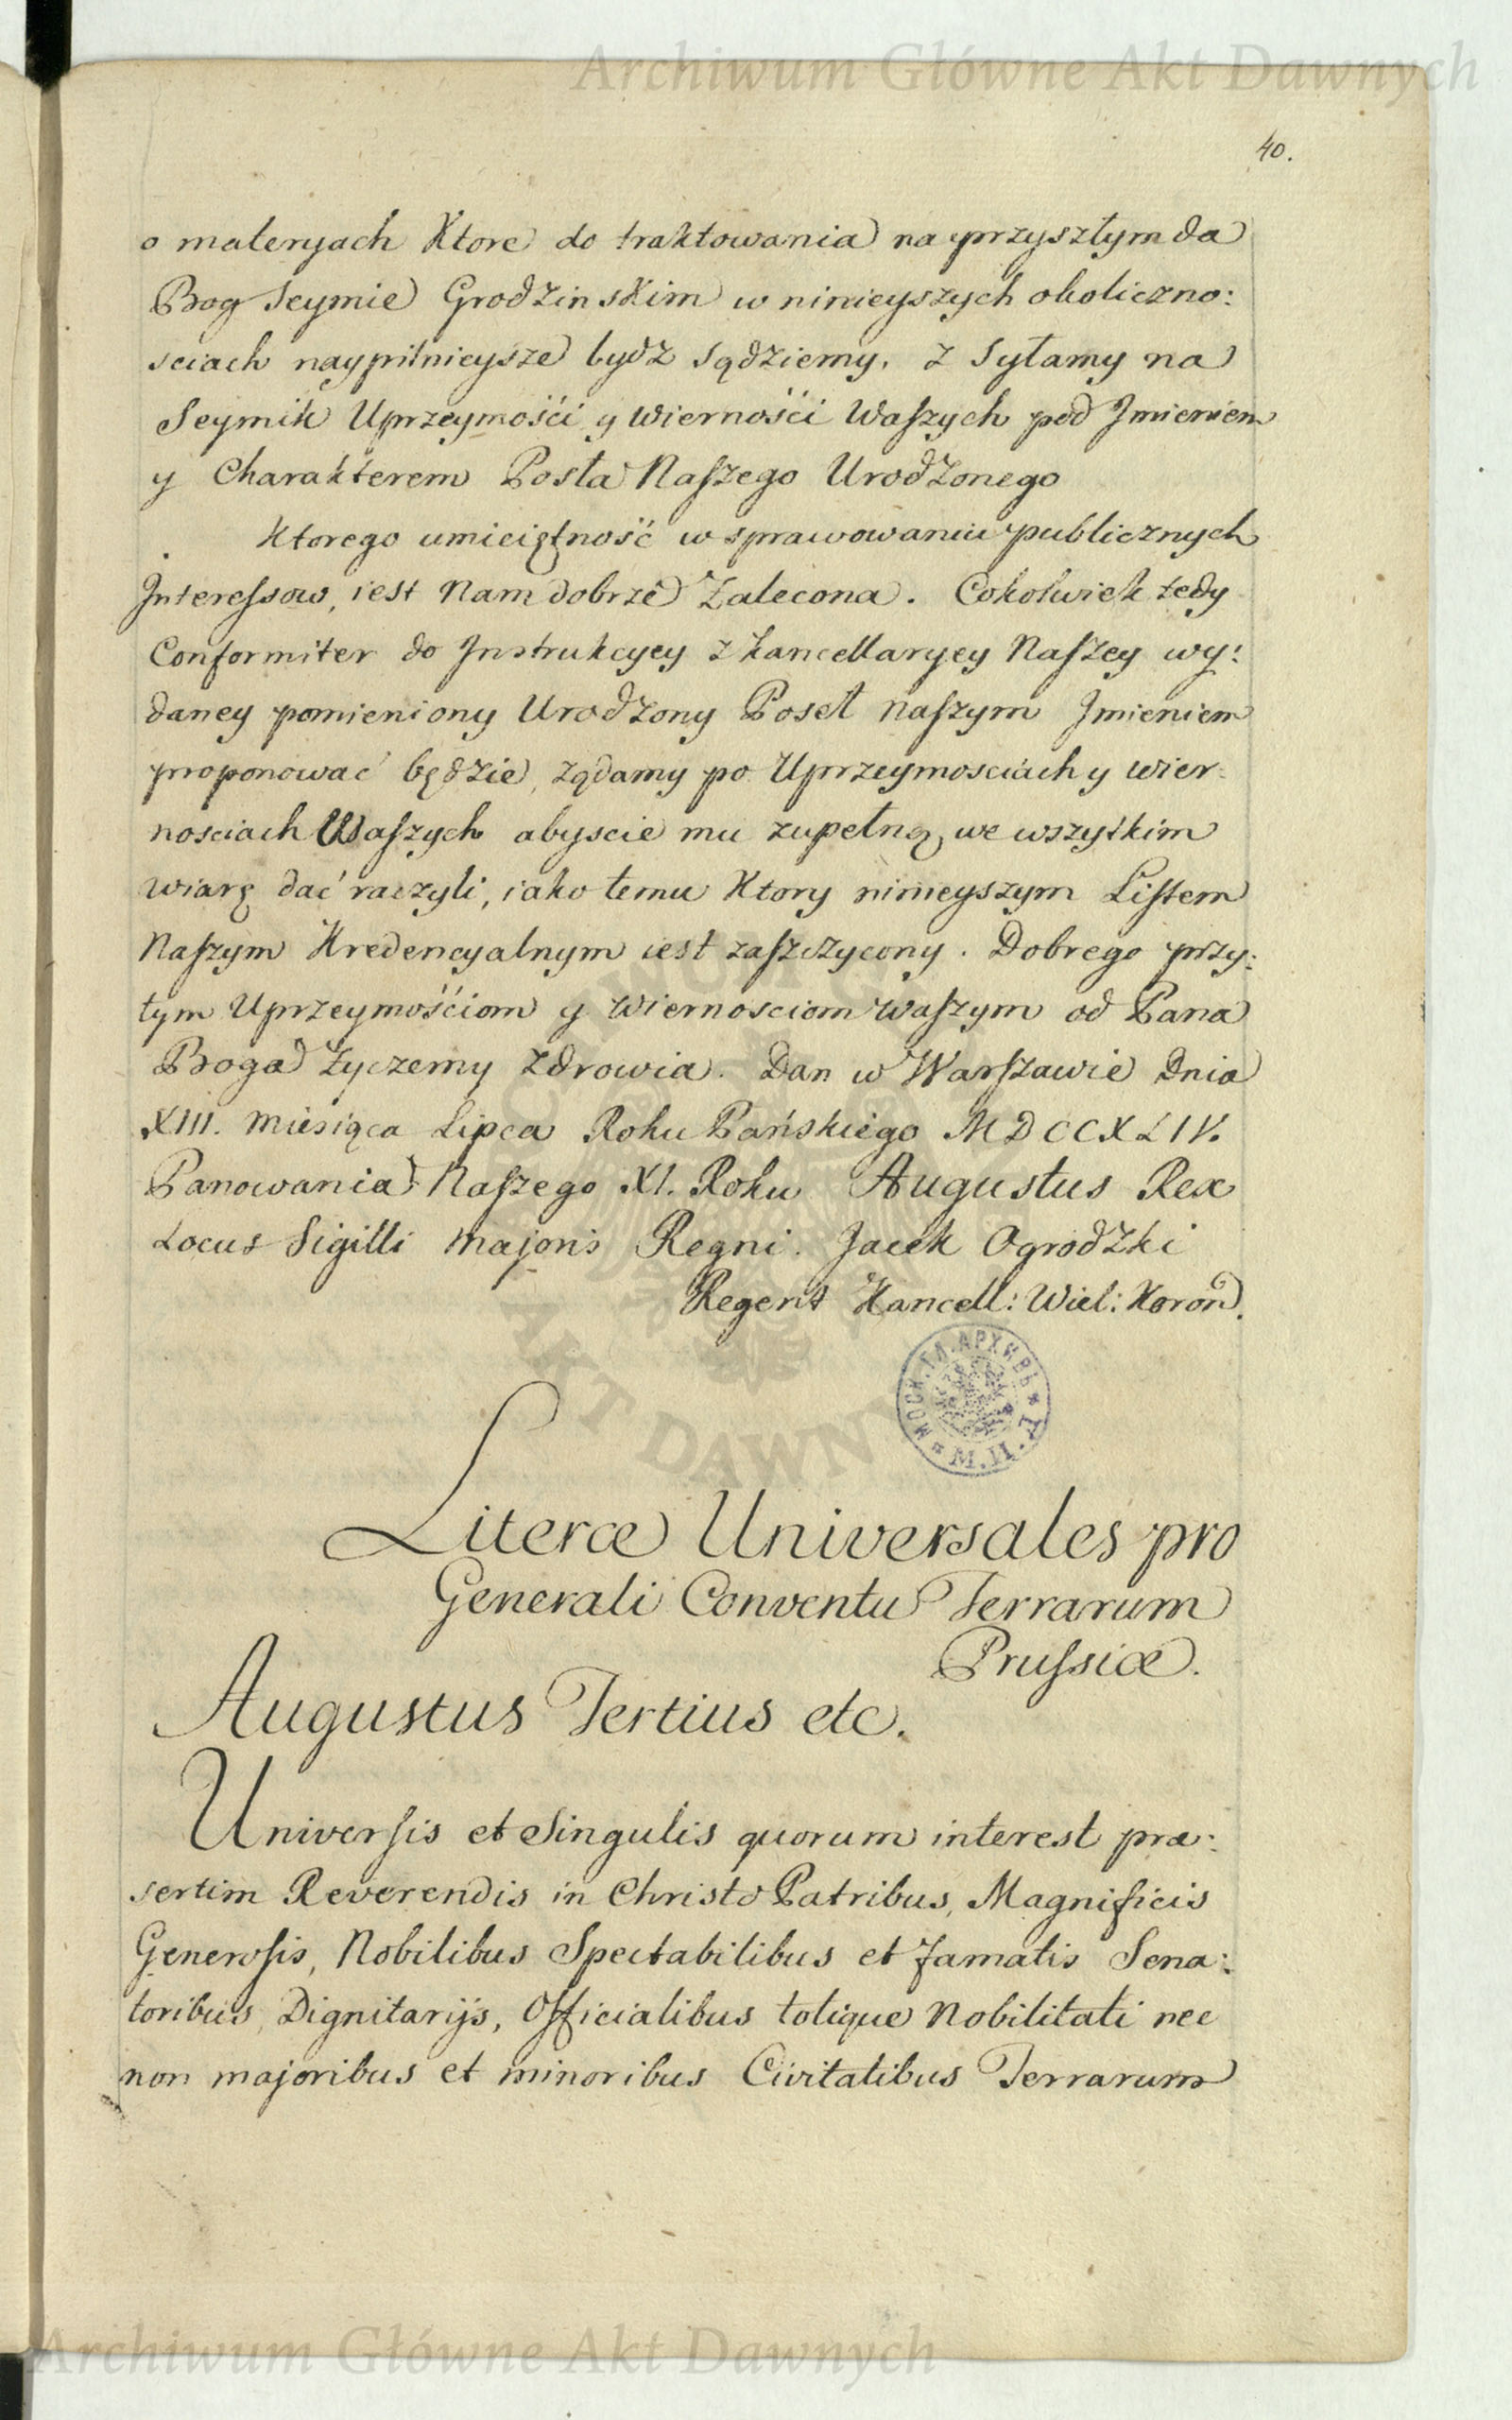 Archiwum Główne Akt Dawnych
40.
o materyach Ktore do traktowania na przyszłym da
Bog Seymie Grodzinskim w ninieyszych okoliczno:
sciach naypilnieysze bydz sądziemy, z Syłamy na
Seymik Uprzeymośći y Wiernośći Waſzych pod Jmieniem
y Charakterem Posła Naſzego Urodzonego
Ktorego umieiętność w sprawowaniu publicznych
Jntereſsow, iest Nam dobrze Zalecona. Cokolwiek tedy
Conformiter do Jnstrukcyey z kancellaryey Naſzey wy:
daney pomieniony Urodzony Poseł naſzym Jmieniem
proponować będzie, ządamy po Uprzeymosciach y wier:
nosciach Waſzych abyscie mu zupełną we wszytkim
wiarę dać raczyli, iako temu Ktory ninieyszym Liſtem
Naſzym Kredencyalnym iest zaſzczycony. Dobrego przy:
tym Uprzeymośćiom y Wiernosciom Waſzym od Pana
Boga życzemy Zdrowia. Dan w Warſzawie Dnia
XIII. Miesiąca Lipca Roku Pańskiego MDCCXLIV.
Panowania Naſzego XI. Roku Augustus Rex
Locus Sigilli Majoris Regni. Jacek Ogrodzki
Regent Kancell: Wiel: Koron.
МОСК. ГЛ. АРХИВЪ
М.И.Д.
AKT DAWNY
Literæ Universales pro
Generali Conventu Terrarum
Pruſsiæ.
Augustus Tertius etc.
Univerſis et Singulis quorum interest præ:
sertim Reverendis in Christo Patribus, Magnificis
Generoſis, Nobilibus Spectabilibus et famatis Sena:
toribus, Dignitarijs, Officialibus totique Nobilitati nec
non majoribus et minoribus Civitatibus Terrarum
Archiwum Główne Akt Dawnych